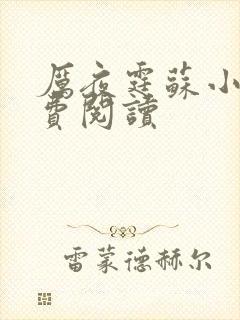 厲夜霆蘇小
費閱讀
雷蒙德赫尔